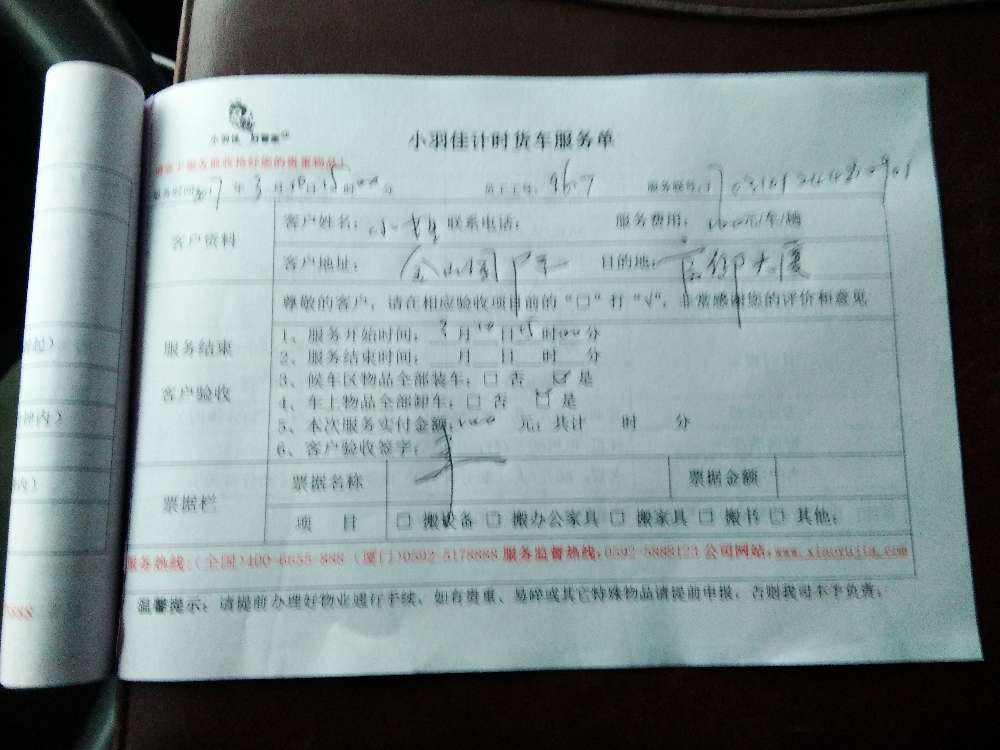 小羽佳
小羽佳计时货车服务单
服务时间:2017年3月10日15时00分 员工工号:9607 服务联号:
客户资料
客户姓名: 联系电话: 服务费用: 元/车/趟
客户地址: 目的地: 大厦
尊敬的客户,请在相应验收项目前的“□”打“√”,非常感谢您的评价和意见
服务结束
客户验收
1、服务开始时间:3月10日15时00分
2、服务结束时间: 月 日 时 分
3、候车区物品全部装车:□ 否 ☑ 是
4、车上物品全部卸车:□ 否 ☑ 是
5、本次服务实付金额: 元;共计 时 分
6、客户验收签字:
票据栏
票据名称 票据金额
项 目 □ 搬设备 □ 搬办公家具 □ 搬家具 □ 搬书 □ 其他:
服务热线:(全国)400-6655-888 (厦门)0592-5178888 服务监督热线:0592-5888123 公司网站:www.xiaoyujia.com
温馨提示:请提前办理好物业通行手续,如有贵重、易碎或其它特殊物品请提前申报,否则我司不予负责。